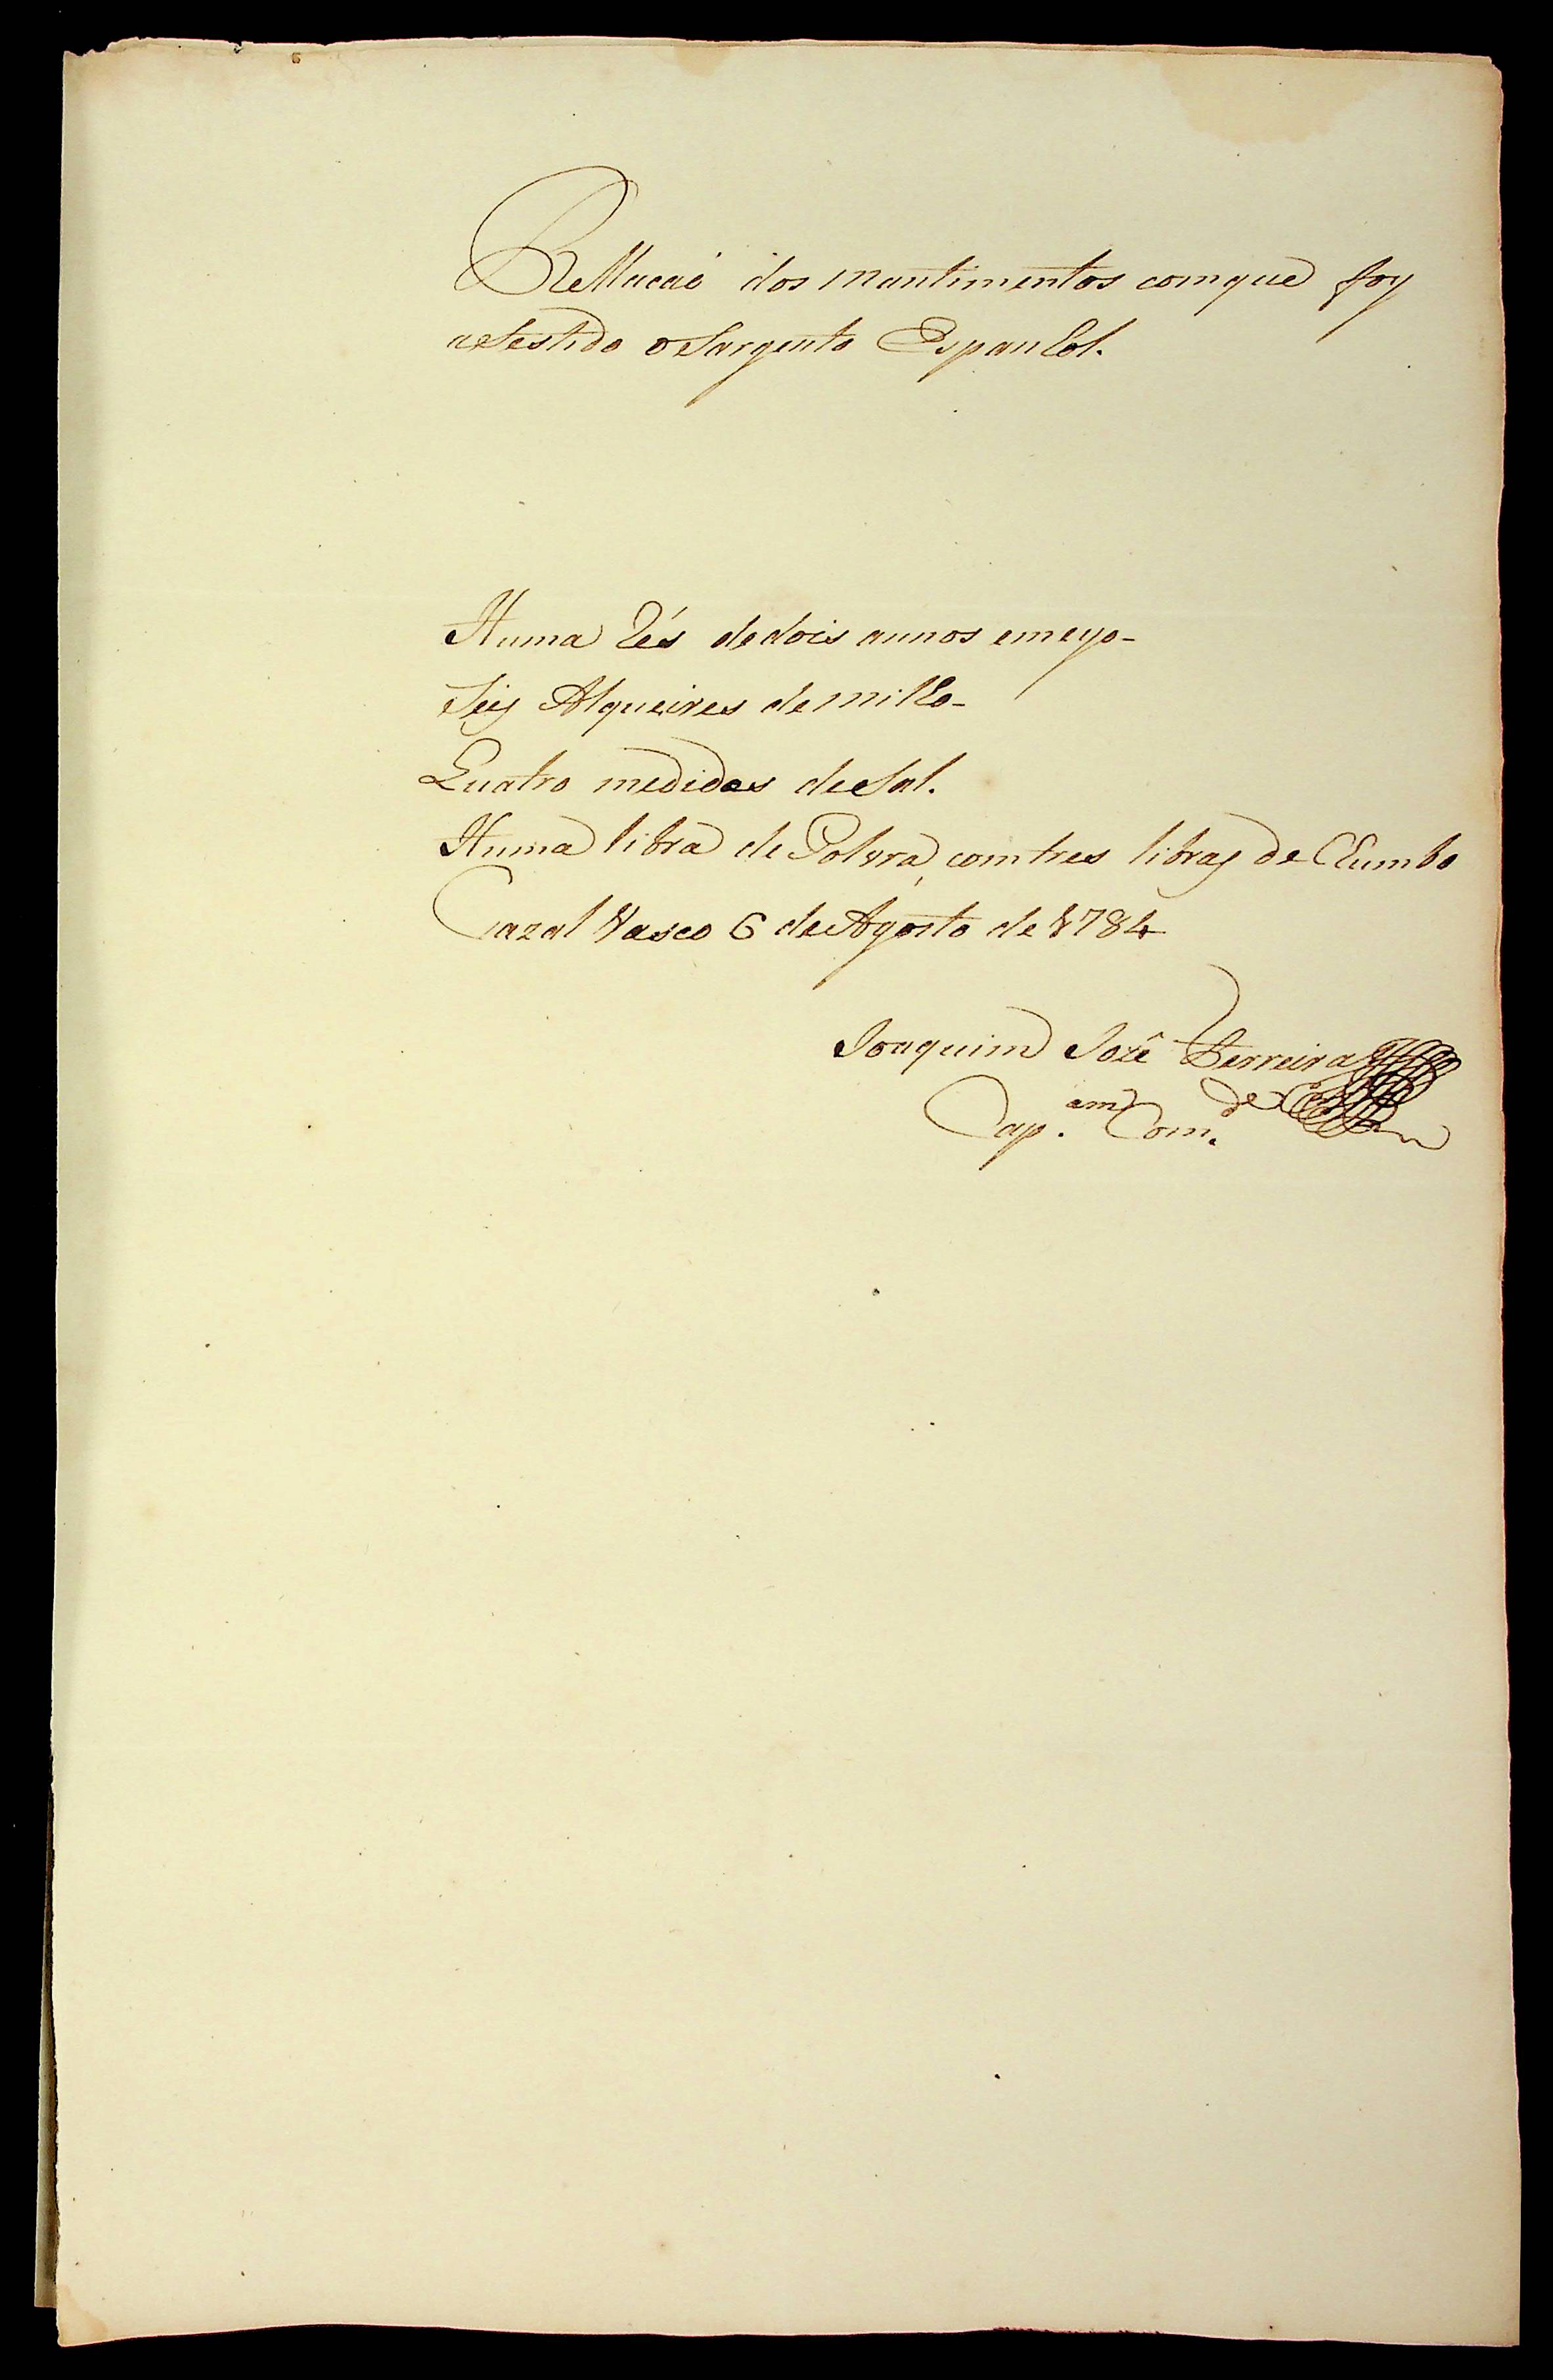 Rellacaõ dos mantimentos comque foy
asestido o Sargento Espanhol.
Huma Rés de dois annos emeyo-
Seis Alqueires de milho-
Quatro medidas de Sal.
Huma libra de Polvra, comtres libras de Chumbo
Cazal Vasco 6 de Agosto de 1784
Joaquim Jozê Ferreira
Cap.am Com.de